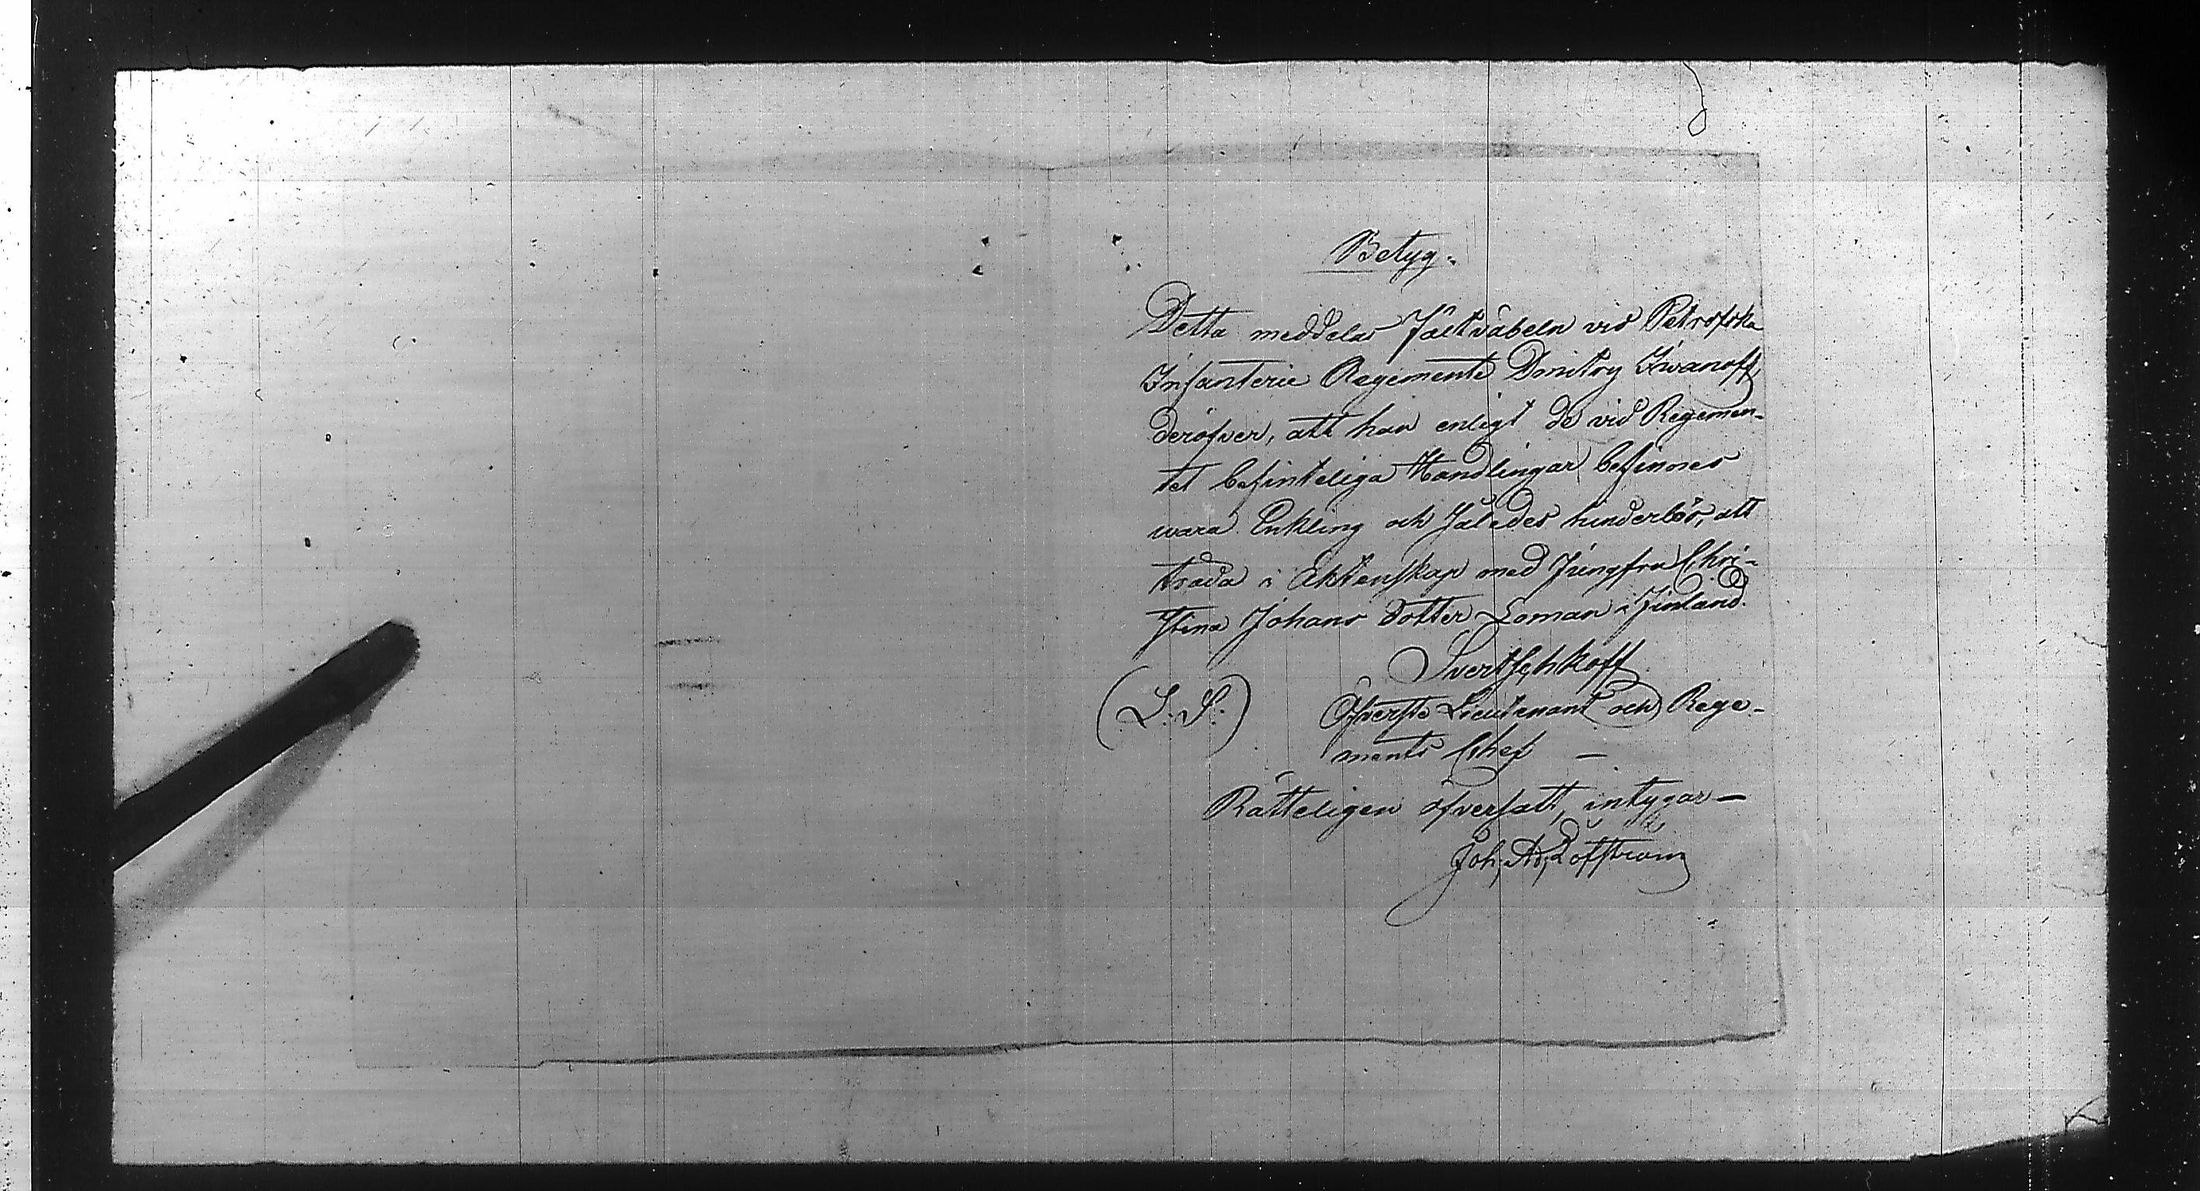 Betyg.
Detta meddelas Fältväbeln vid Petrofska
Infanterie Regemente Dmitry Iwanoff
deröfver, att han enligt de vid Regemen-
tet befinteliga Handlingar befinnes
wara Enkling och således hinderlös, att
träda i Äktenskap med Jungfru Chri-
stina Johans dotter Loman i Finland.
Svertschkoff
(L. S.) Öfverste Lieutenant och Rege-
ments Chef —
Rätteligen öfversatt, intygar —
Joh. Ad. Löfström